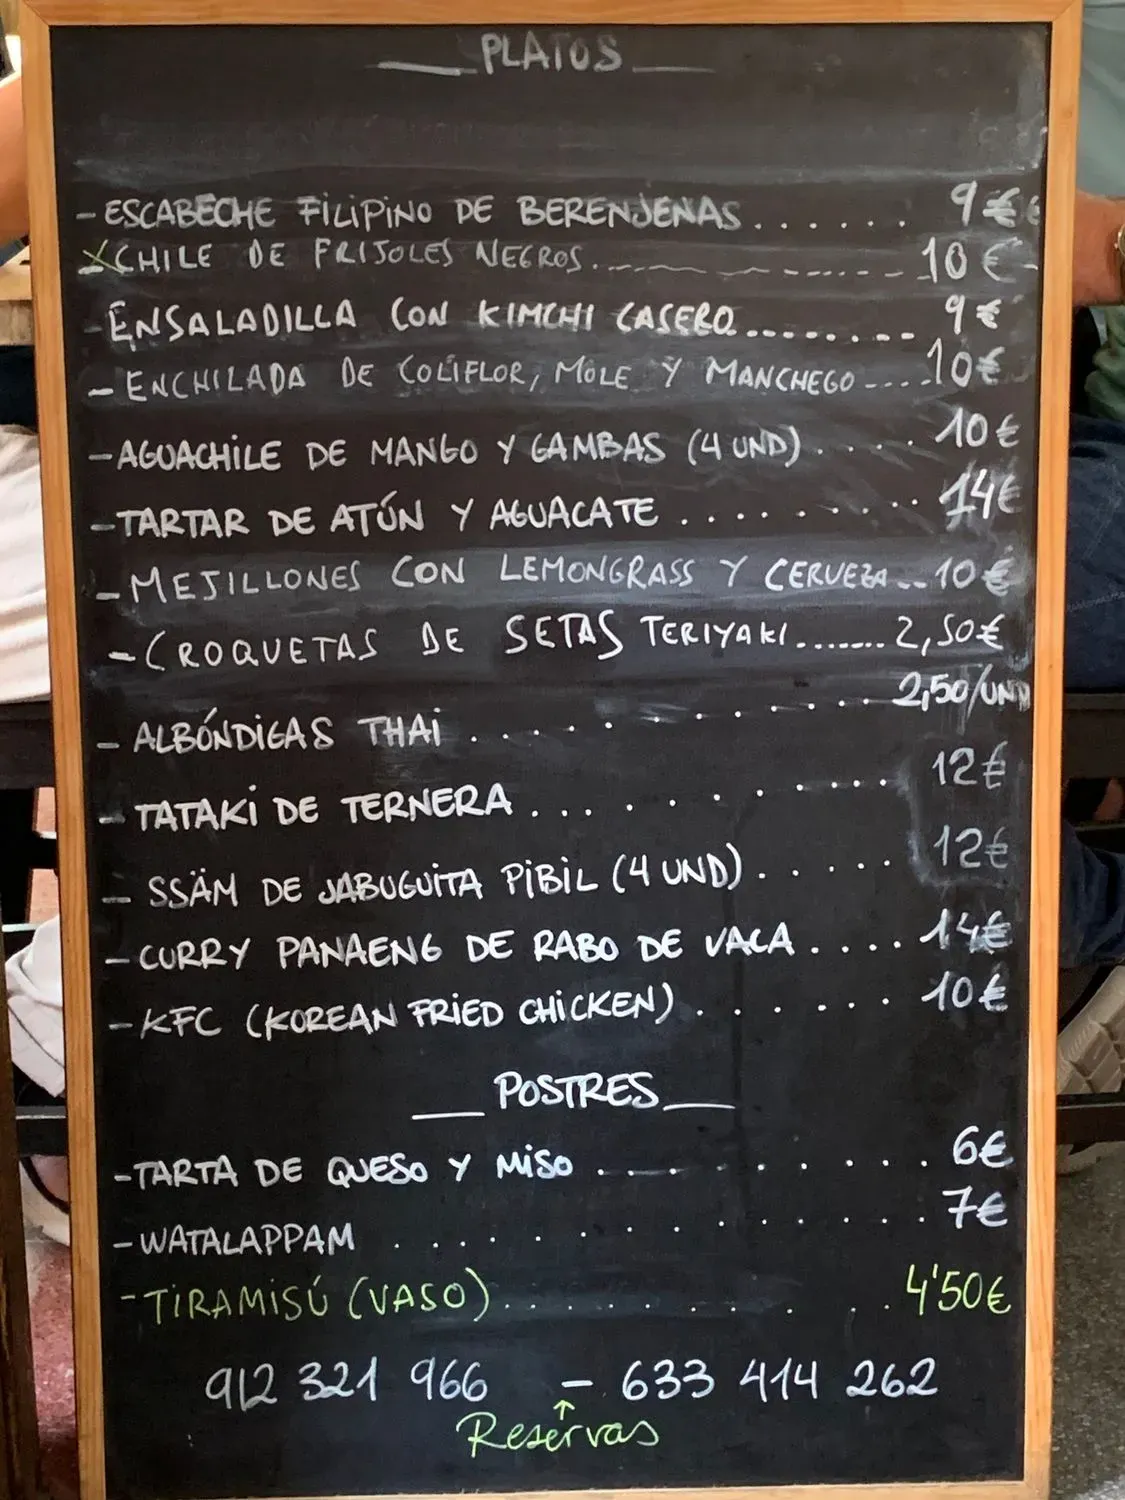 PLATOS
- ESCABECHE FILIPINO DE BERENJENAS....... 9€
- CHILE DE FRIJOLES NEGROS........... 10€
- ENSALADILLA CON KIMCHI CASERO......... 9€
- ENCHILADA DE COLIFLOR, MOLE Y MANCHEGO .... 10€
- AGUACHILE DE MANGO Y GAMBAS (4 UND)..... 10€
- TARTAR DE ATÚN Y AGUACATE ......... 14€
- MEJILLONES CON LEMONGRASS Y CERVEZA .. 10€
- CROQUETAS DE SETAS TERIYAKI....... 2,50€
- ALBÓNDIGAS THAI ............ 2,50/UND
- TATAKI DE TERNERA ............ 12€
- SSÄM DE JABUGUITA PIBIL (4 UND)...... 12€
- CURRY PANAENG DE RABO DE VACA ..... 14€
- KFC (KOREAN FRIED CHICKEN)........ 10€
POSTRES
- TARTA DE QUESO Y MISO .......... 6€
- WATALAPPAM ............... 7€
- TIRAMISÚ (VASO)........... 4'50€
912 321 966 - 633 414 262
↑
Reservas